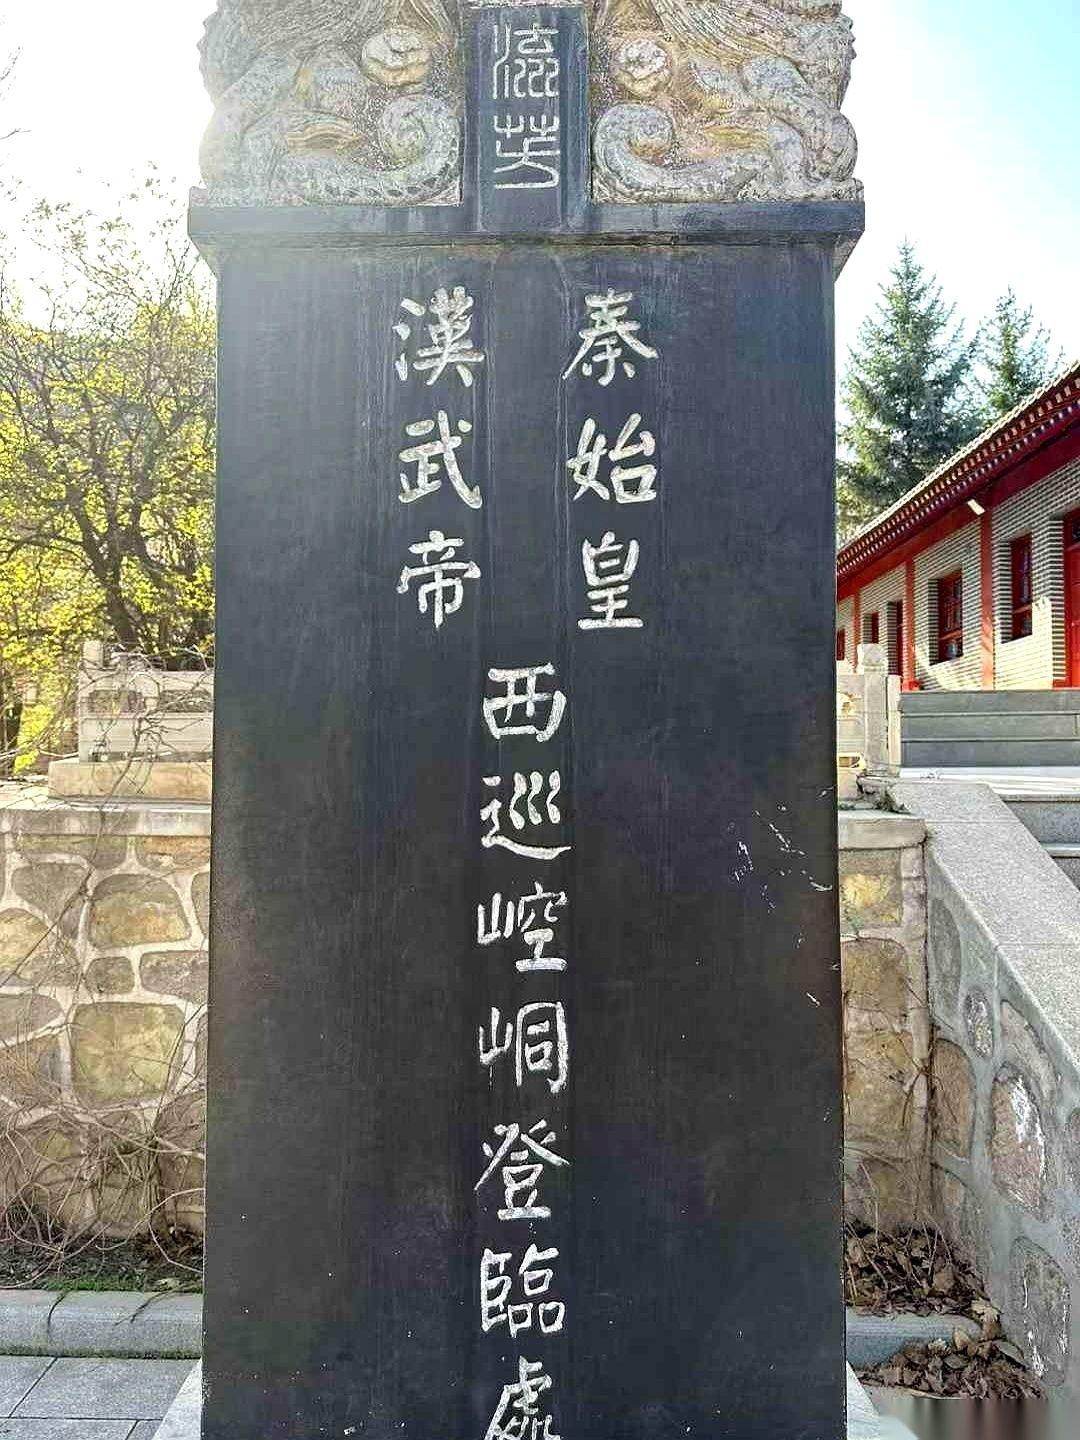 流芳
秦始皇
漢武帝
西巡崆峒登臨處